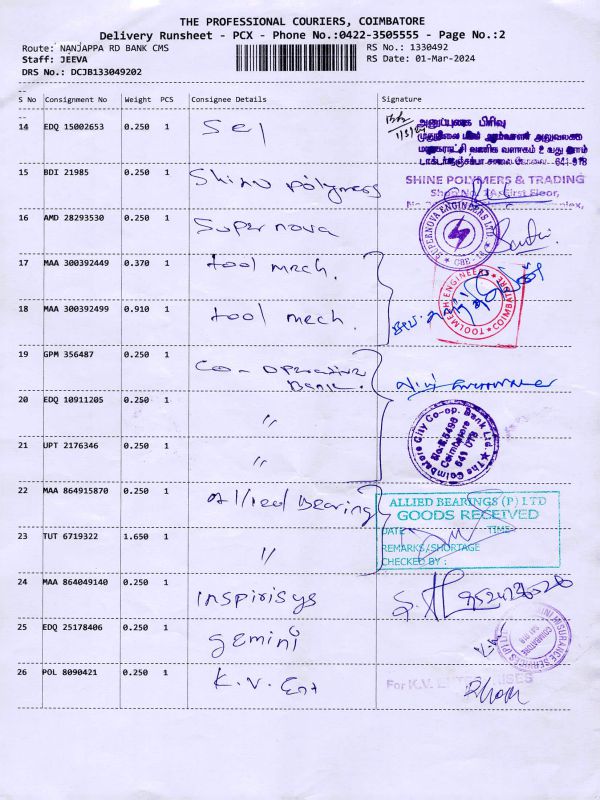 THE PROFESSIONAL COURIERS, COIMBATORE
Delivery Runsheet - PCX - Phone No.:0422-3505555 - Page No.:2
Route: NANJAPPA RD BANK CMS
RS No.: 1330492
Staff: JEEVA
RS Date: 01-Mar-2024
DRS No.: DCJB133049202
S No Consignment No Weight PCS Consignee Details Signature
14 EDQ 15002653 0.250 1 Sel
அனுப்புகை பிரிவு
641 018
15 BDI 21985 0.250 1 Shine polymers
SHINE POLYMERS & TRADING
First Floor,
16 AMD 28293530 0.250 1 Supernova
SUPERNOVA ENGINEERS LTD
CBE - 18
17 MAA 300392449 0.370 1 tool mech.
18 MAA 300392499 0.910 1 tool mech.
TOOLMECH ENGINEERS
COIMBATORE
19 GPM 356487 0.250 1 Co-operative Bank.
20 EDQ 10911205 0.250 1 〃
The Coimbatore City Co-op. Bank Ltd.
No.R.5496
Coimbatore
641 018
21 UPT 2176346 0.250 1 〃
22 MAA 864915870 0.250 1 Allied Bearing
ALLIED BEARINGS (P) LTD
GOODS RECEIVED
DATE TIME:
23 TUT 6719322 1.650 1 〃
REMARKS/SHORTAGE
CHECKED BY :
24 MAA 864049140 0.250 1 inspirisys
25 EDQ 25178406 0.250 1 gemini
COIMBATORE
26 POL 8090421 0.250 1 K.V. Ent
For K.V. ENTERPRISES